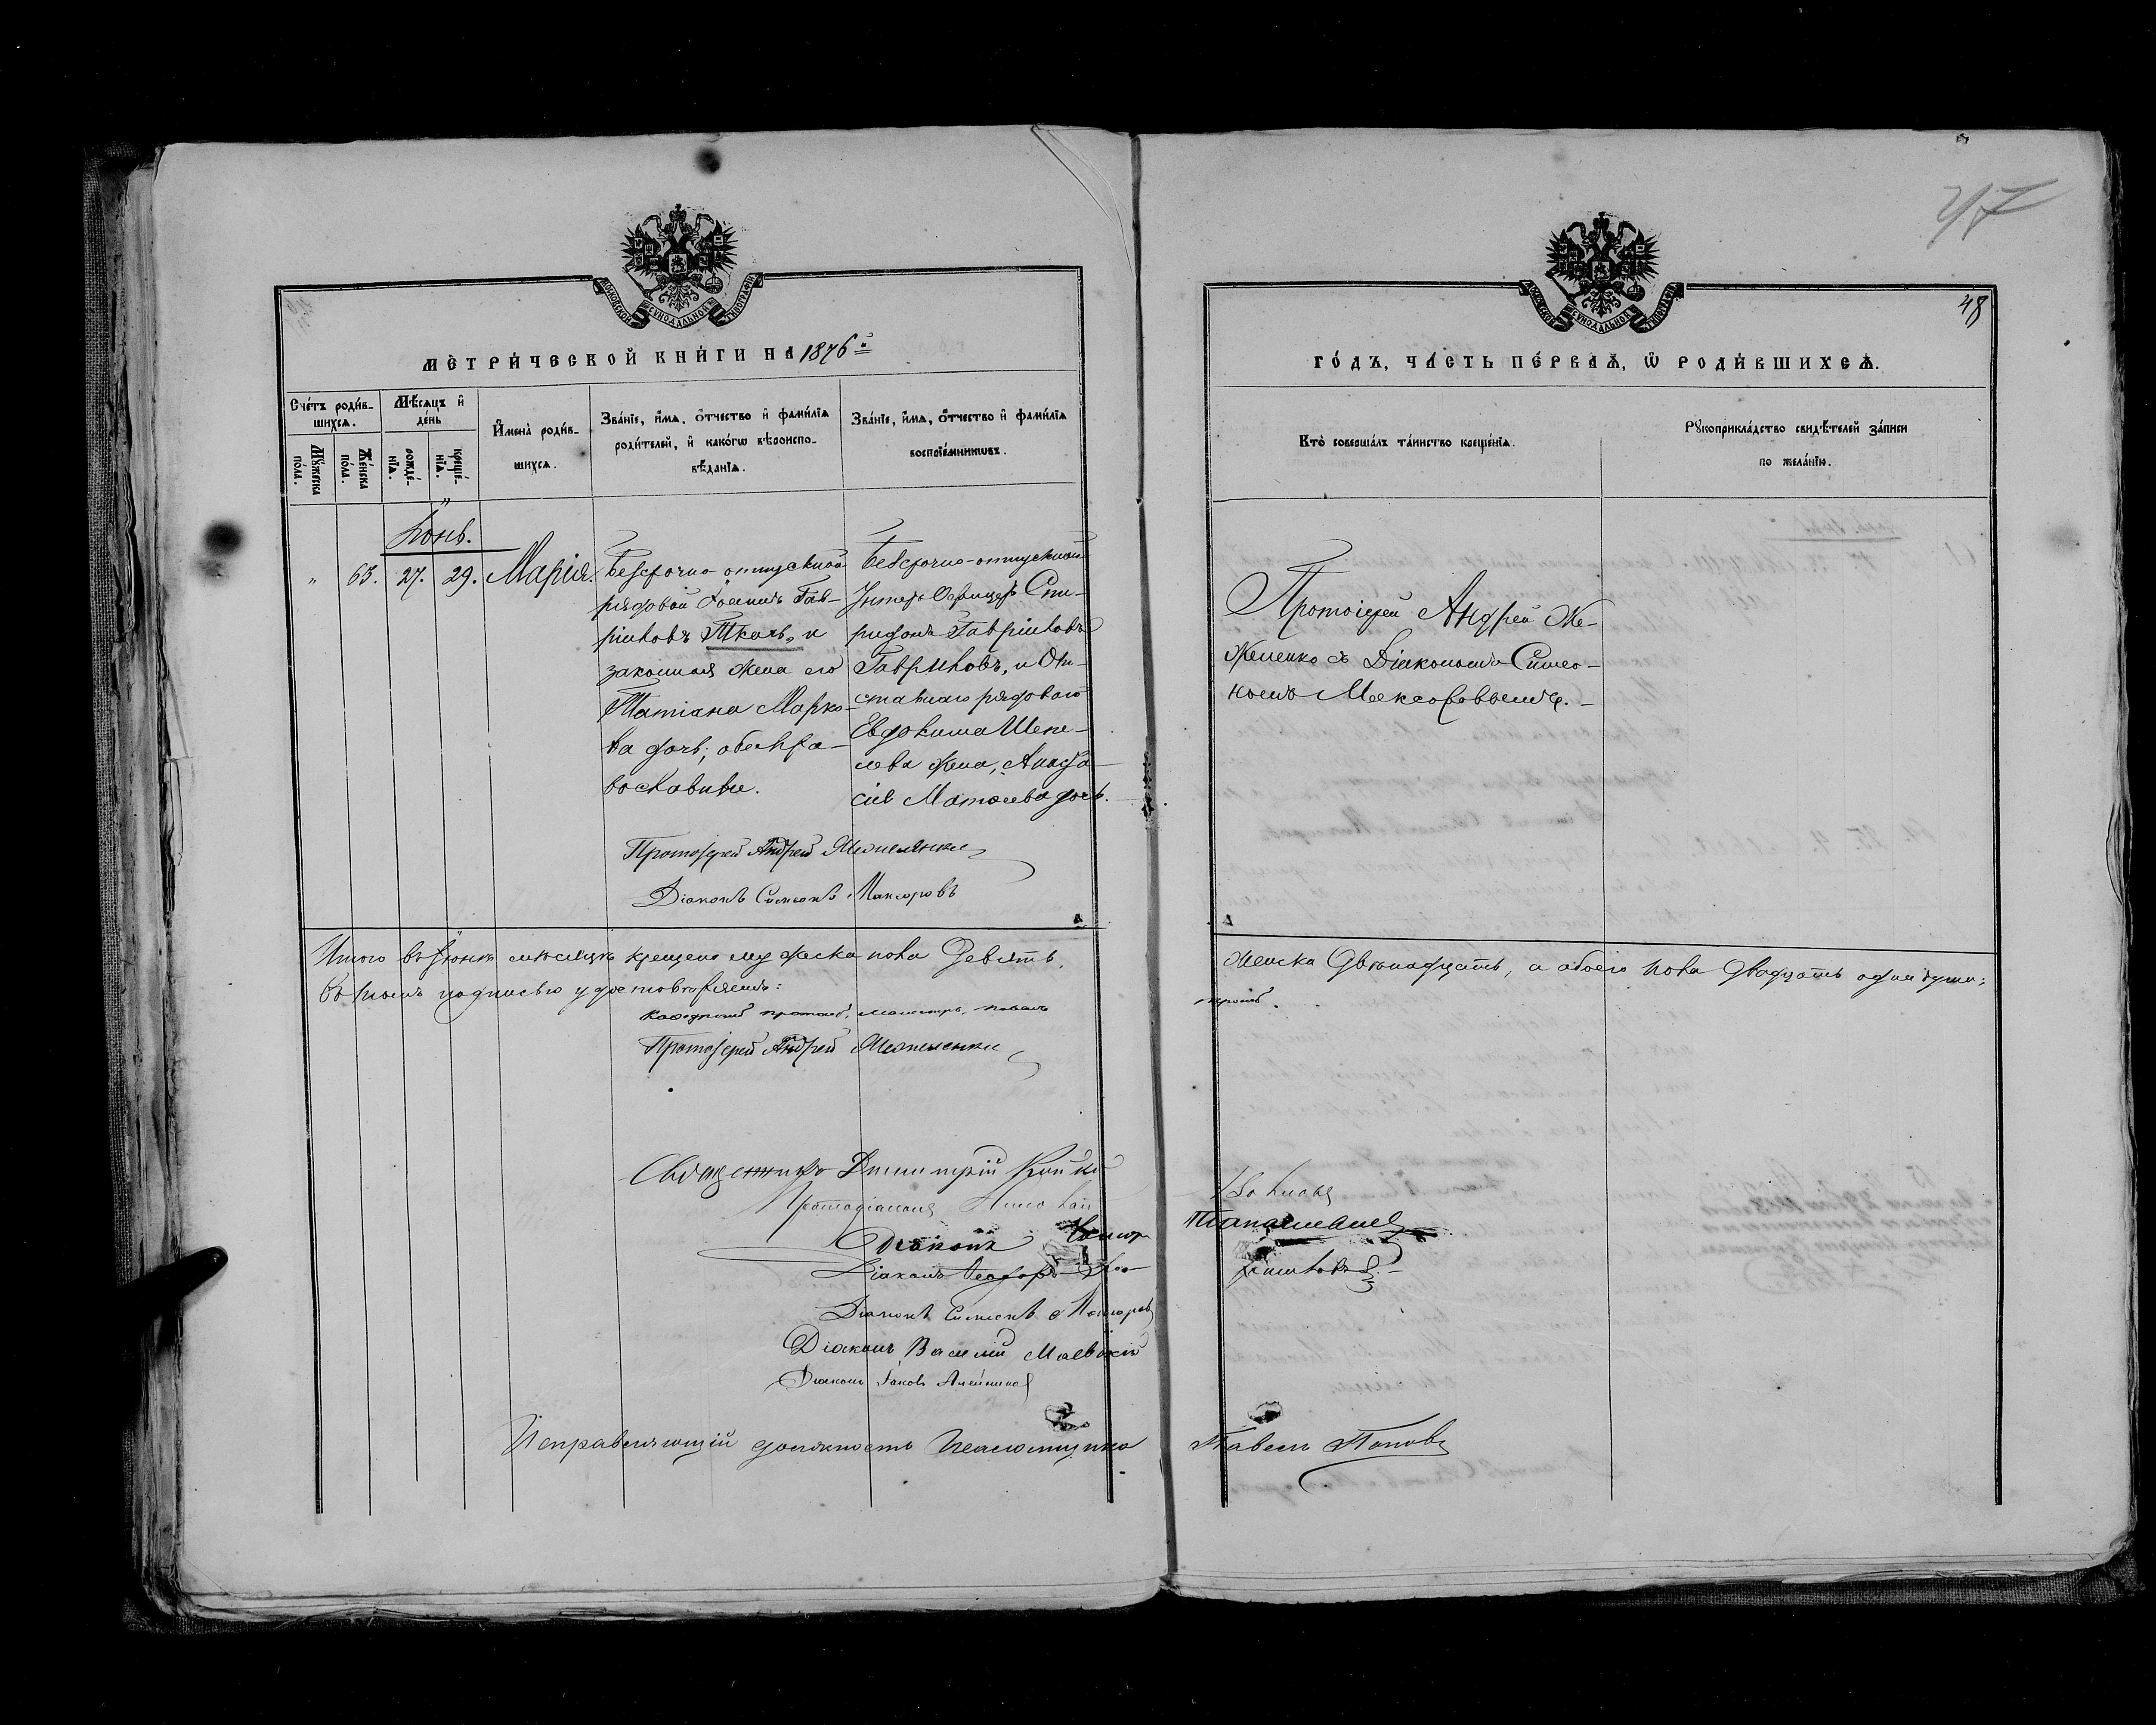 47
48
МОСКОВСКОЙ СѴНОДАЛЬНОЙ ТИПОГРАФІИ
МЕТРИ́ЧЕСКОЙ КНИ́ГИ НА 1876й
МОСКОВСКОЙ СѴНОДАЛЬНОЙ ТИПОГРАФІИ
ГО́ДЪ, ЧА́СТЬ ПЕ́РВАѦ, Ѿ РОДИ́ВШИХСѦ.
Сче́тъ роди́в-
шихсѧ.
Мꙋ́жеска по́ла.
Же́нска по́ла.
Мѣ́сѧцъ и҆
де́нь
рожде́-
нїѧ.
креще́-
нїѧ.
И҆мена̀ роди́в-
шихсѧ.
Зва́нїе, и҆́мѧ, ѻ҆́тчество и҆ фами́лїѧ
роди́телей, и҆ како́гѡ вѣроиспо-
вѣ́данїѧ.
Зва́нїе, и҆́мѧ, ѻ҆́тчество и҆ фами́лїѧ
воспрїе́мникѡвъ.
Кто̀ соверша́лъ та́инство креще́нїѧ.
Рꙋкоприкла́дство свидѣ́телей за́писи
по жела́нїю.
Іюнь.
" 63. 27. 29. Марія.
Безсрочно отпускной
рядовой Іосифъ Гав-
ріиловъ Ткачь, и
законная жена его
Татіана Марко-
ва дочь; оба пра-
вославные.
Безсрочно-отпускной
Унтеръ Офицеръ Спи-
ридонъ Гавріиловъ
Гавриловъ, и От-
ставнаго рядоваго
Евдокима Шепе-
лева жена, Анаста-
сія Матѳеева дочь.
Протоіерей Андрей Же-
желенко съ Діакономъ Симео-
номъ
Протоіерей Андрей Жежеленко
Діаконъ Симеонъ
Итого въ Іюнѣ мѣсяцѣ крещено мужеска пола девять,
женска двѣнадцать, а обоего пола двадцать одна душа;
въ чемъ подписью удостовѣряемъ:
Каѳедральн. протоіер. магистръ,
Протоіерей Андрей Жежеленко
Священникъ Димитрій
Протодіаконъ
Діаконъ
Діаконъ Ѳеодоръ
Діаконъ Симеонъ
Діаконъ Василій
Діаконъ Іаковъ Алейников
Исправляющій должность Псаломщика Павелъ Поповъ